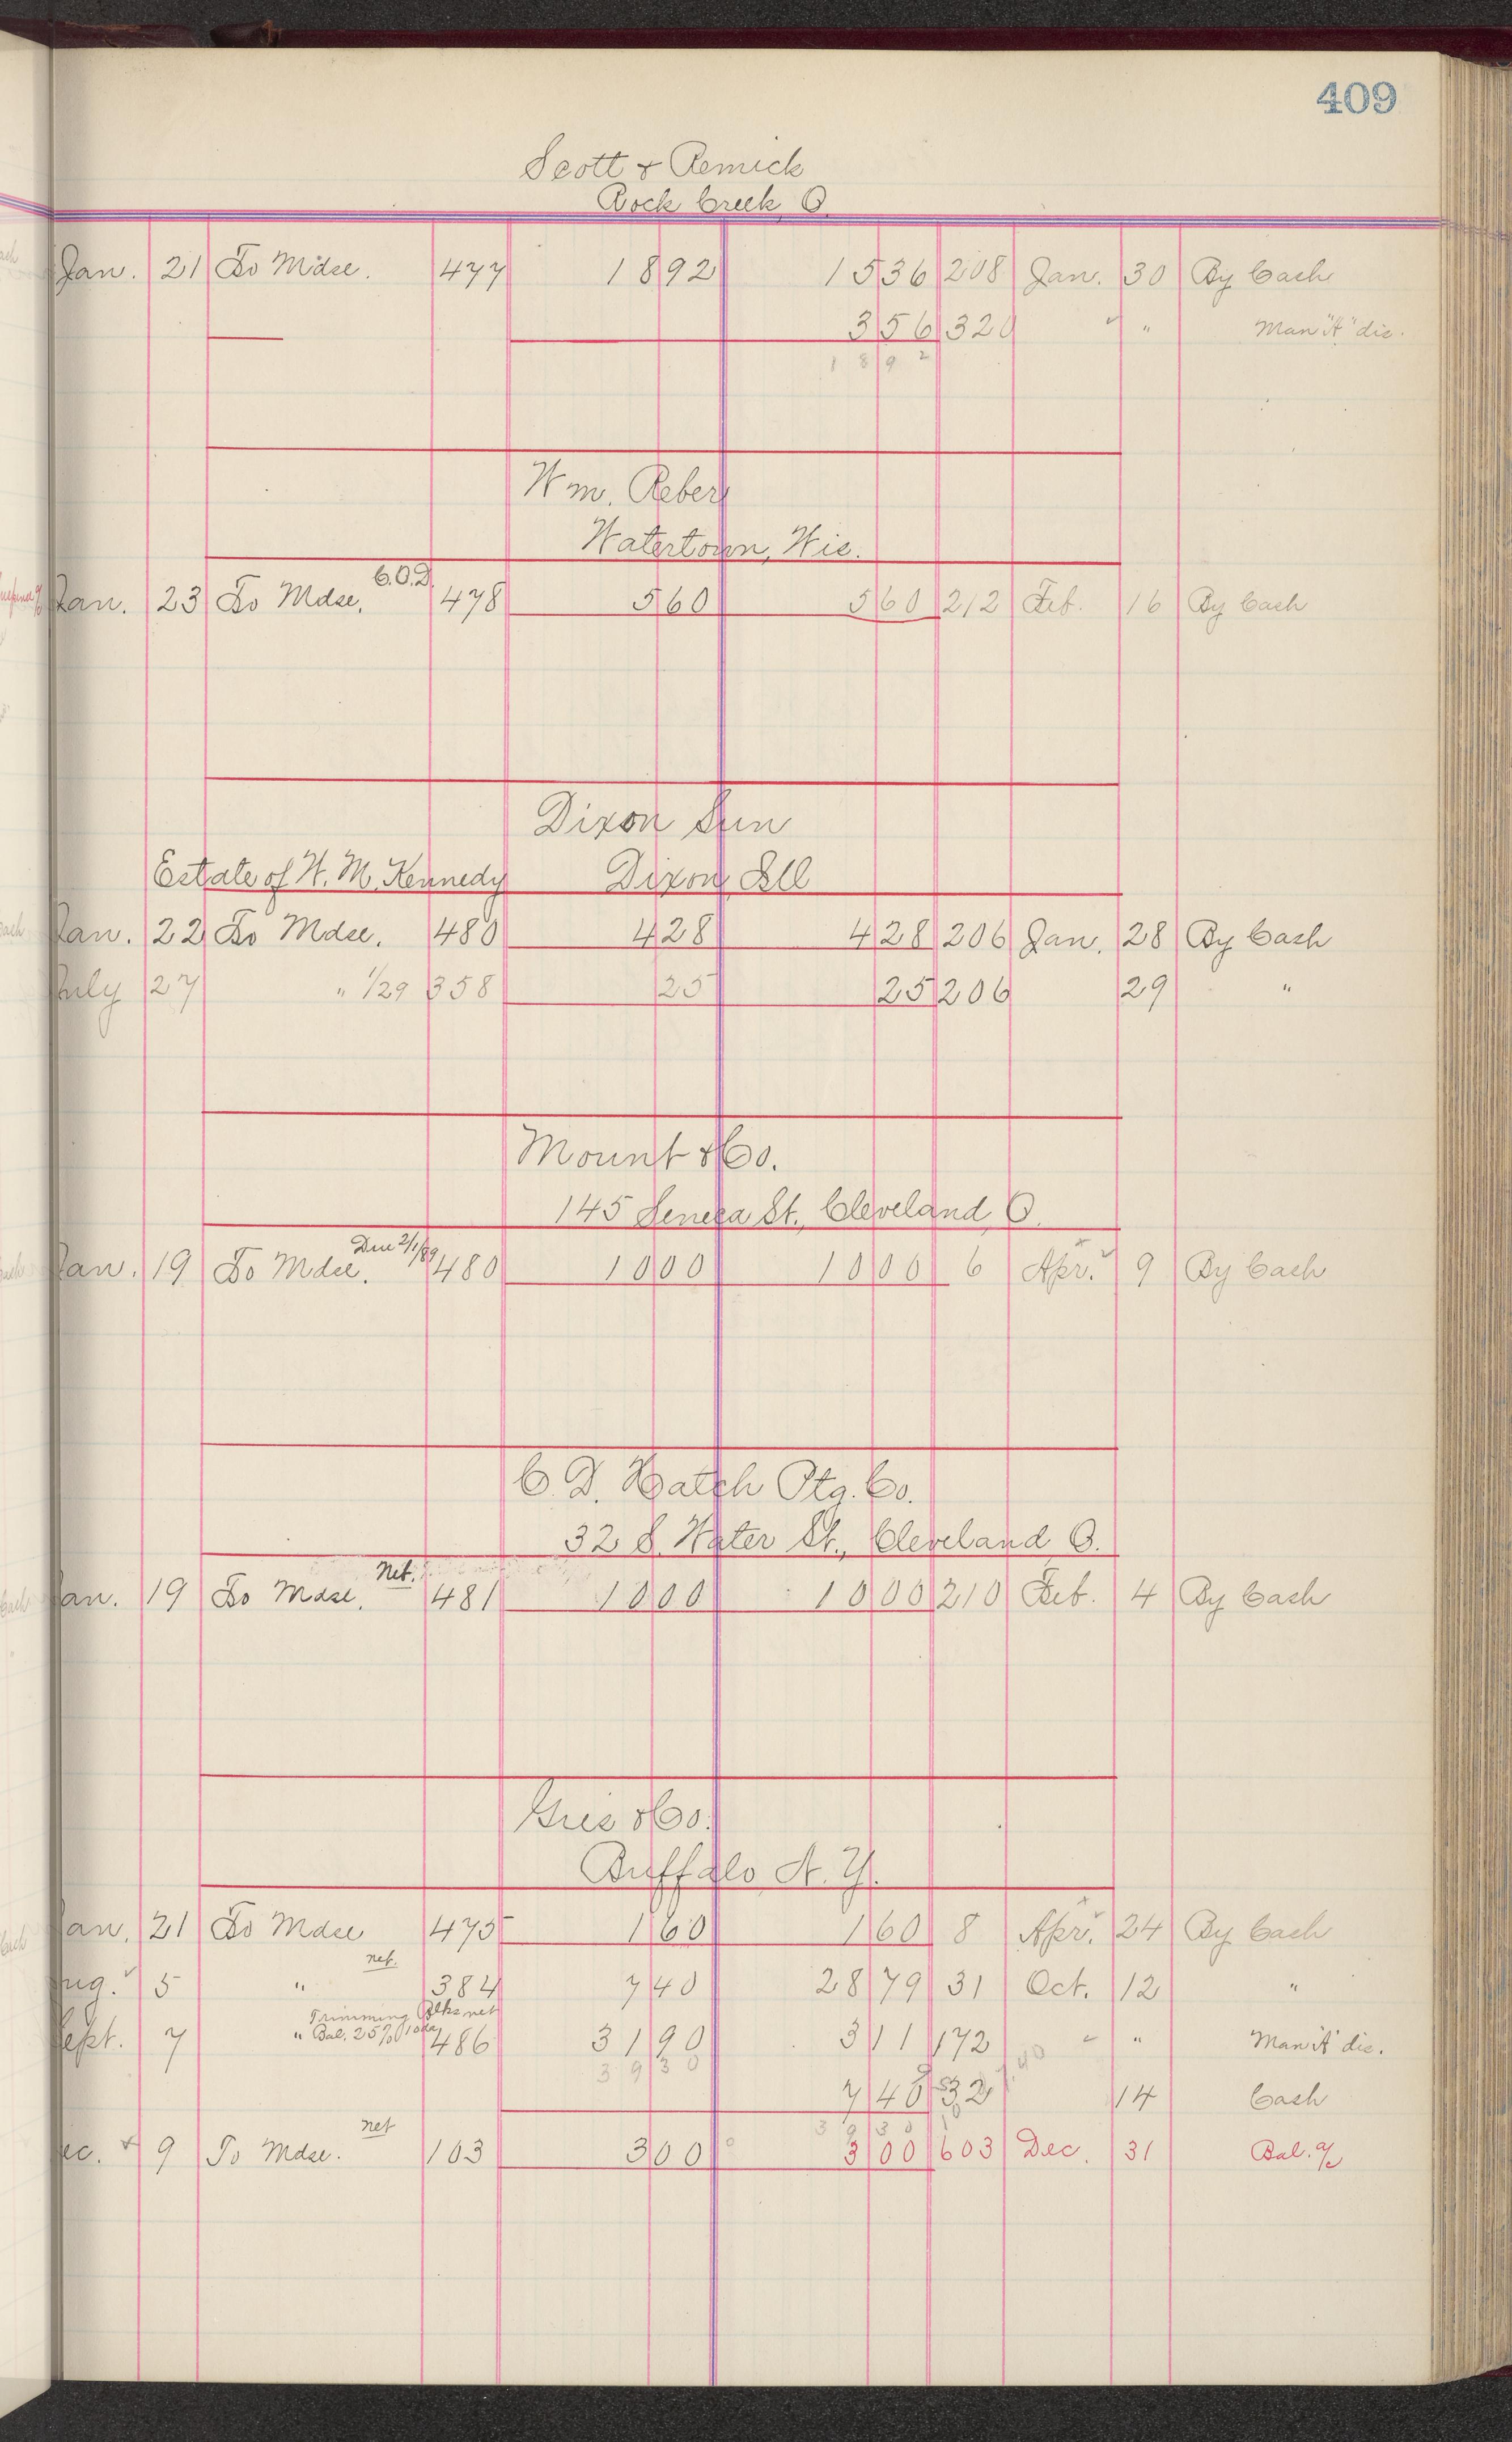 409
Scott & Remick
Rock Creek O.
Jan. 21 To Mdse. 477 18 92 15 36 208 Jan. 30 By Cash
3 56 320 " " Man "A" dis.
18 9 2
Wm. Reber
Watertown, Wis.
Jan. 23 To Mdse. C.O.D. 478 5 60 5 60 212 Feb. 16 By Cash
Dixon Sun
Estate of W. M. Kennedy Dixon Ill
Jan. 22 To Mdse. 480 4 28 4 28 206 Jan. 28 By Cash
July 27 " 1/29 358 25 25 206 29 "
Mount & Co.
145 Seneca St., Cleveland O.
Jan. 19 To Mdse. Due 2/1/89 480 10 00 10 00 6 Apr. 9 By Cash
C. D. Hatch Ptg. Co.
32 S. Water St., Cleveland O.
Jan. 19 To Mdse. Net. 481 10 00 10 00 210 Feb. 4 By Cash
Gies & Co.
Buffalo N.Y.
Jan. 21 To Mdse 475 1 60 1 60 8 Apr. 24 By Cash
net.
Aug. 5 " 384 7 40 28 79 31 Oct. 12 "
Trimming Blks net
Sept. 7 " Bal. 25% 10 day 486 31 90 3 11 172 " " Man "A" dis.
39 30
7 40 32 14 Cash
39 30
net
Dec. 9 To Mdse. 103 3 00 3 00 603 Dec. 31 Bal. a/c